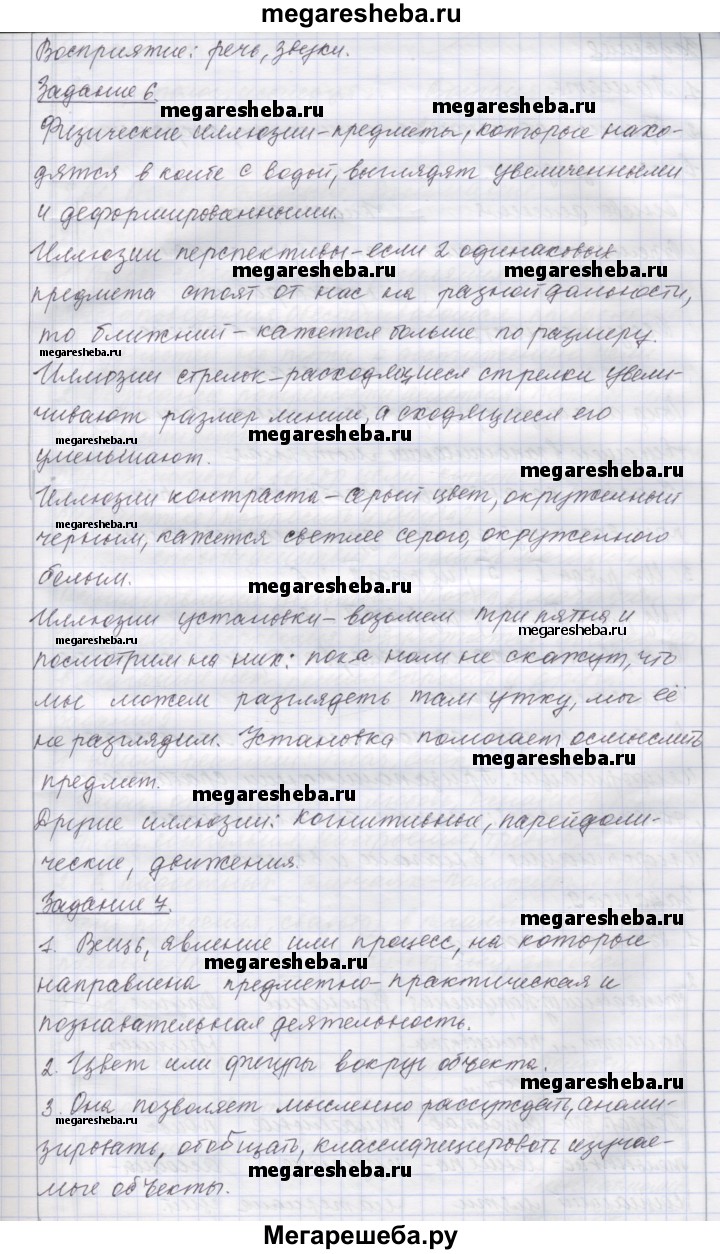 megaresheba.ru
Восприятие: речь, звуки.
Задание 6.
megaresheba.ru megaresheba.ru
Физические иллюзии – предметы, которые нахо-
дятся в колбе с водой, выглядят увеличенными
и деформированными.
Иллюзии перспективы – если 2 одинаковых
megaresheba.ru megaresheba.ru
предмета стоят от нас на разной дальности,
то ближний – кажется больше по размеру.
megaresheba.ru
Иллюзии стрелок – расходящиеся стрелки увели-
чивают размер линии, а сходящиеся его
megaresheba.ru megaresheba.ru
уменьшают.
megaresheba.ru
Иллюзии контраста – серый цвет, окруженный
megaresheba.ru
черным, кажется светлее серого, окруженного
белым.
megaresheba.ru
Иллюзии установки – возьмем три пятна и
megaresheba.ru megaresheba.ru
посмотрим на них: пока нам не скажут, что
мы можем разглядеть там утку, мы её
не разглядим. Установка помогает осмыслить
megaresheba.ru
предмет.
megaresheba.ru
Другие иллюзии: когнитивные, парейдоли-
ческие, движения.
Задание 7.
megaresheba.ru
1. Вещь, явление или процесс, на которые
megaresheba.ru
направлена предметно-практическая и
познавательная деятельность.
2. Цвет или фигуры вокруг объекта.
megaresheba.ru
3. Она позволяет мысленно рассуждать, анали-
megaresheba.ru
зировать, обобщать, классифицировать изучае-
мые объекты.
megaresheba.ru
Мегарешеба.ру